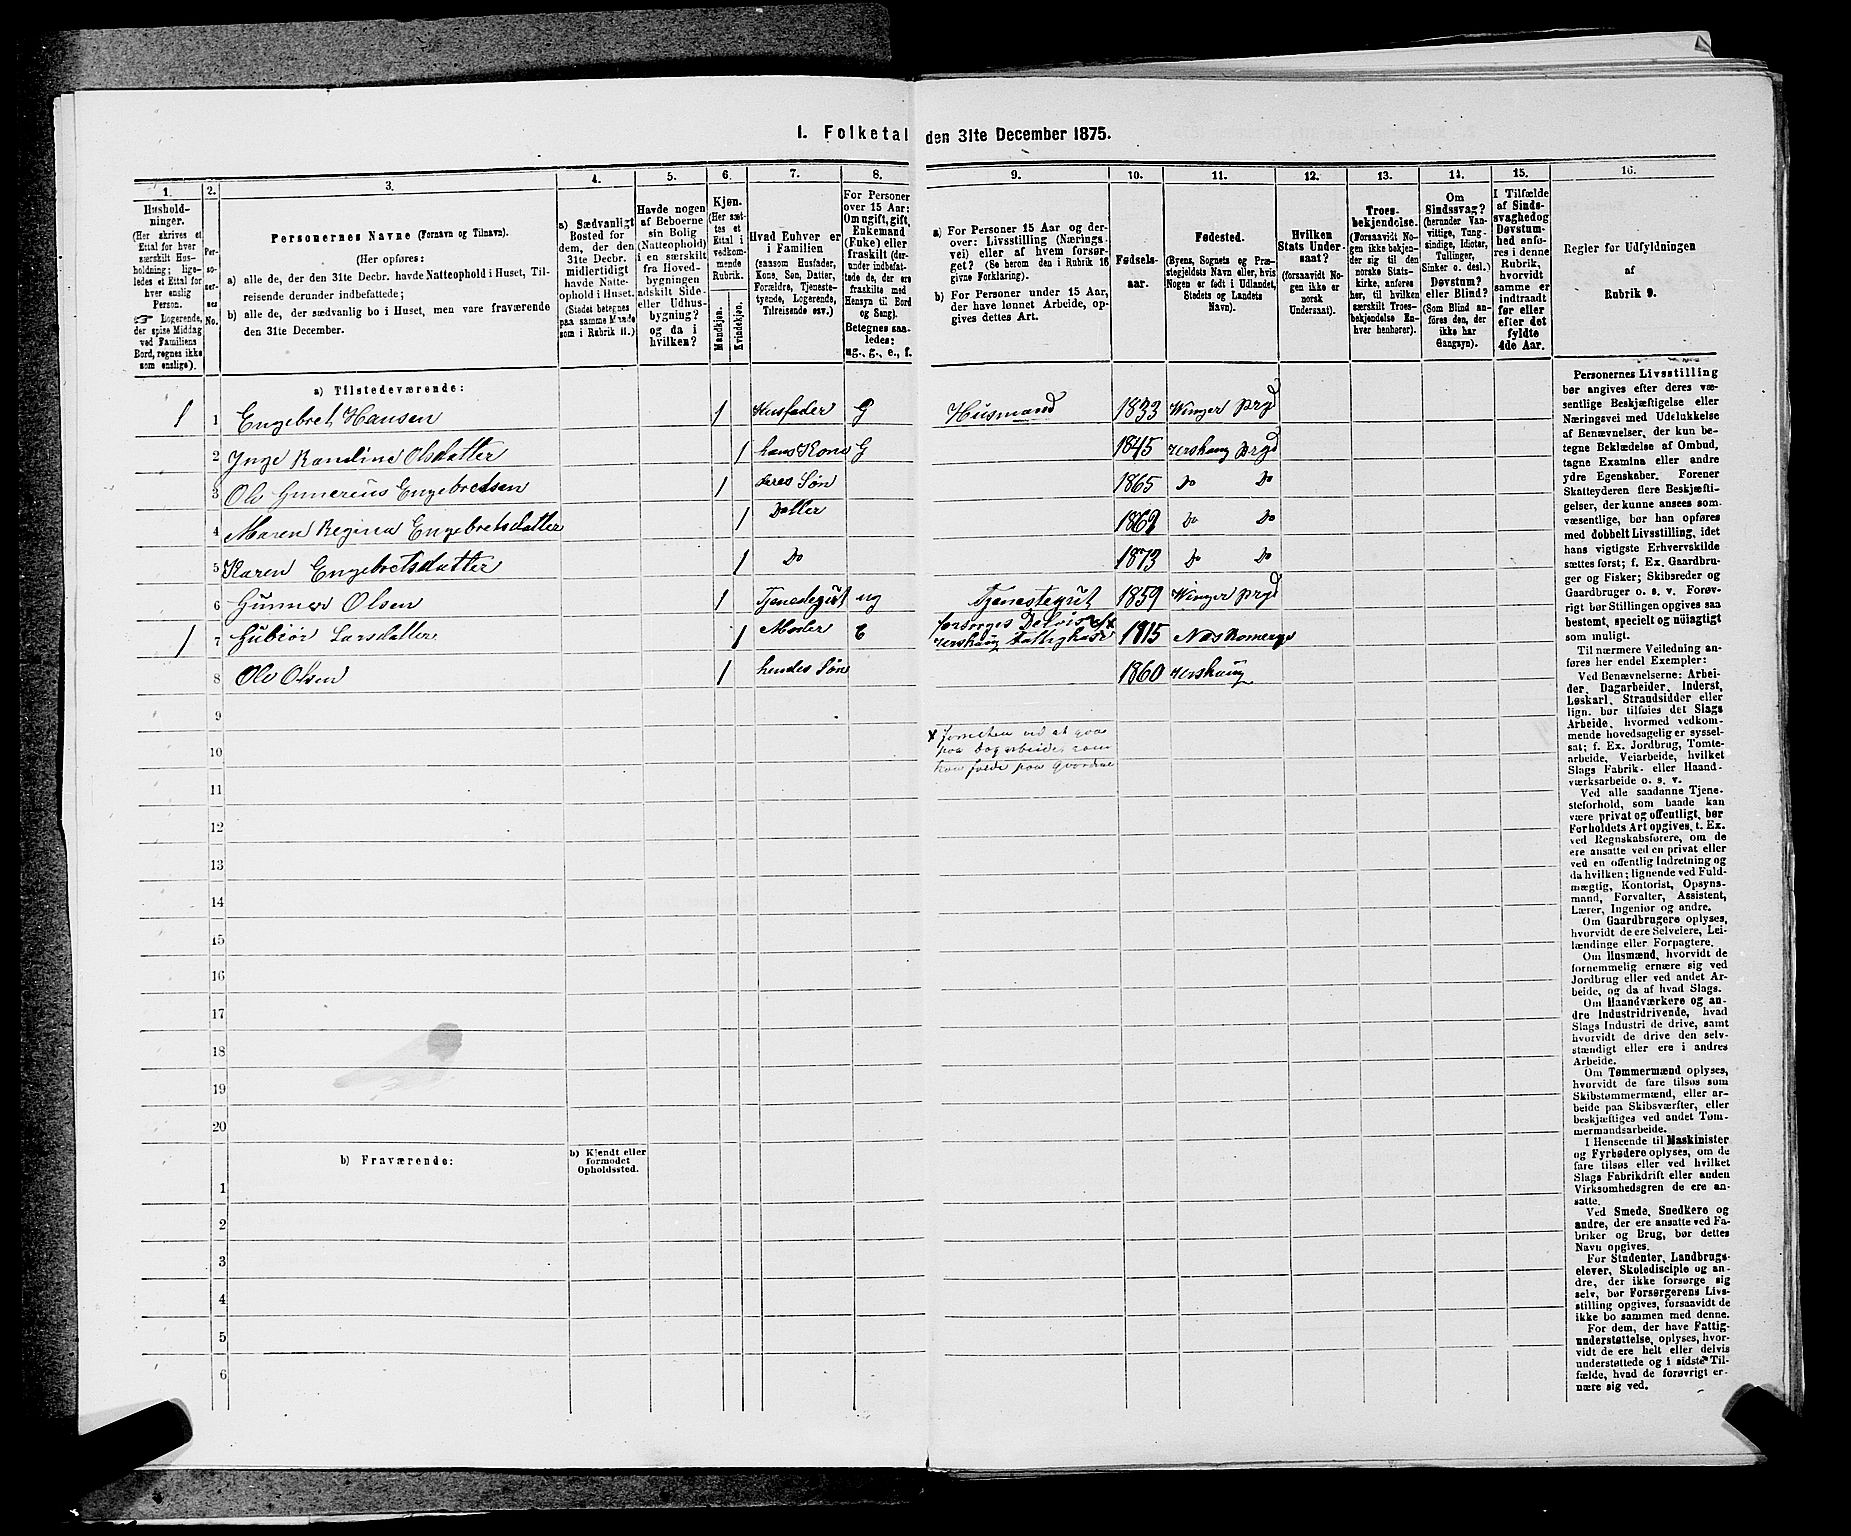 1. Folketal den 31te December 1875.
1. 2. 3. 4. 5. 6. 7. 8. 9. 10. 11. 12. 13. 14. 15. 16.
Hushold-
ninger.
(Her skrives et
Ettal for hver
særskilt Hus-
holdning; lige-
ledes et Ettal
for hver
enslig
Person.
☞ Logerende,
der spise Middag
ved Familiens
Bord, regnes ikke
som enslige).
Per-
so-
ner-
nes
No.
Personernes Navne (Fornavn og Tilnavn).
(Her opføres:
a) alle de, der den 31te Decbr. havde Natteophold i Huset, Til-
reisende derunder indbefattede;
b) alle de, der sædvanlig bo i Huset, men vare fraværende
den 31te December.
a) Sædvanligt
Bosted for
dem, der den
31te Decbr.
midlertidigt
havde Natte-
ophold i Huset.
(Stedet betegnes
paa samme Maade
som i Rubrik 11.)
Havde nogen
af Beboerne
sin Bolig
(Natteophold)
i en særskilt
fra Hoved-
bygningen
adskilt Side-
eller Udhus-
bygning?
og da i
hvilken?
Kjøn.
(Her sæt-
tes et
Ettal i
vedkom-
mende
Rubrik.
Mandkjøn.
Kvindekjøn.
Hvad Enhver er
i Familien
(saasom Husfader,
Kone, Søn, Datter,
Forældre, Tjeneste-
tyende, Logerende,
Tilreisende osv.)
For Personer
over 15 Aar:
Om ugift, gift,
Enkemand
(Enke) eller
fraskilt (der-
under indbefat-
tede de, der ere
fraskilte med
Hensyn til Bord
og Seng).
Betegnes saa-
ledes:
ug., g., e., f.
a) For Personer 15 Aar og der-
over: Livsstilling (Nærings-
vei) eller af hvem forsør-
get? (Se herom den i Rubrik 16
givne Forklaring).
b) For Personer under 15 Aar,
der have lønnet Arbeide, op-
gives dettes Art.
Fødsels-
aar.
Fødested.
(Byens, Sognets og Præ-
stegjeldets Navn eller, hvis
Nogen er født i Udlandet,
Stedets og Landets
Navn).
Hvilken
Stats Under-
saat?
(forsaavidt No-
gen ikke er
norsk
Undersaat).
Troes-
bekjendelse.
(Forsaavidt No-
gen ikke bekjen-
der sig til den
norske Stats-
kirke, anføres
her, til hvilken
særskilt Troes-
bekjendelse En-
hver henhører).
Om
Sindssvag?
(herunder Van-
vittige, Tung-
sindige, Idioter,
Tullinger,
Sinker o. desl.)
Døvstum?
eller Blind?
(Som Blind an-
føres den, der
ikke har
Gangsyn).
I Tilfælde
af Sinds-
svaghed og
Døvstum-
hed anfø-
res i denne
Rubrik,
hvorvidt
samme er
indtraadt
før eller
efter det
fyldte
4de Aar.
Regler for Udfyldningen
af
Rubrik 9.
a) Tilstedeværende:
1 1 Engebret Hansen 1 Husfader G Husmand 1833 Winger Prgd
2 Inge Randine Olsdatter 1 hans Kone G 1845 Prgd
3 Ole Gunerius Engebretsen 1 deres Søn 1865 Do Do
4 Maren Regina Engebretsdatter 1 Datter Do Do
5 Karen Engebretsdatter 1 Do 1873 Do Do
6 Gunner Olsen 1 Tjenestegut ug Tjenestegut 1859 Winger Prgd
1 7 Larsdatter 1 Moder E forsørges Delvis af x 1815 Nes Romerige
8 Ole Olsen 1 hendes Søn 1860
9
x ved at gaa
10 paa Dagarbeide
paa Gaardene
11
12
13
14
15
16
17
18
19
20
b) Fraværende:
b) Kjendt eller
formodet
Opholdssted.
1
2
3
4
5
6
Personernes Livsstilling
bør angives efter deres væ-
sentlige Beskjæftigelse eller
Næringsvei med Udelukkelse
af Benævnelser, der kun be-
tegne Beklædelse af Ombud,
tagne Examina eller andre
ydre Egenskaber. Forener
Skatteyderen flere Beskjæfti-
gelser, der kunne ansees som
væsentlige, bør han opføres
med dobbelt Livsstilling, idet
hans vigtigste Erhvervskilde
sættes først; f. Ex. Gaardbru-
ger og Fisker; Skibsreder og
Gaardbruger o. s. v. Forøv-
rigt bør Stillingen opgives saa
bestemt, specielt og nøiagtigt
som muligt.
Til nærmere Veiledning an-
føres her endel Exempler:
Ved Benævnelserne: Arbei-
der, Dagarbeider, Inderst,
Løskarl, Strandsidder eller
lign. bør tilføies det Slags
Arbeide, hvormed vedkom-
mende hovedsagelig er syssel-
sat; f. Ex. Jordbrug, Tomte-
arbeide, Veiarbeide, hvilket
Slags Fabrik- eller Haand-
værksarbeide o. s. v.
Ved alle saadanne Tjene-
steforhold, som baade kan
være privat og offentligt, bør
Forholdets Art opgives, t. Ex.
ved Regnskabsførere, om de
ere ansatte ved en privat eller
ved en offentlig Indretning og
da hvilken; lignende ved Fuld-
mægtig, Kontorist, Opsyns-
mand, Forvalter, Assistent,
Lærer, Ingeniør og andre.
Om Gaardbrugere oplyses,
hvorvidt de ere Selveiere, Lei-
lændinge eller Forpagtere.
Om Husmænd, hvorvidt de
fornemmelig ernære sig ved
Jordbrug eller ved andet Ar-
beide, og da af hvad Slags.
Om Haandværkere og an-
dre Industridrivende, hvad
Slags Industri de drive, samt
hvorvidt de drive den selv-
stændigt eller ere i andres
Arbeide.
Om Tømmermænd oplyses,
hvorvidt de fare tilsøs som
Skibstømmermænd, eller ar-
beide paa Skibsværfter, eller
beskjæftiges ved andet Tøm-
mermandsarbeide.
I Henseende til Maskinister
og Fyrbødere oplyses, om de
fare tilsøs eller ved hvilket
Slags Fabrikdrift eller anden
Virksomhedsgren de ere an-
satte.
Ved Smede, Snedkere og
andre, der ere ansatte ved Fa-
briker og Brug, bør dettes
Navn opgives.
For Studenter, Landbrugs-
elever, Skoledisciple og an-
dre, der ikke forsørge sig
selv, bør Forsørgerens Livs-
stilling opgives, forsaavidt de
ikke bo sammen med denne.
For dem, der have Fattig-
understøttelse, oplyses, hvor-
vidt de ere helt eller delvis
understøttede og i sidste Til-
fælde, hvad de forøvrigt er-
nære sig ved.